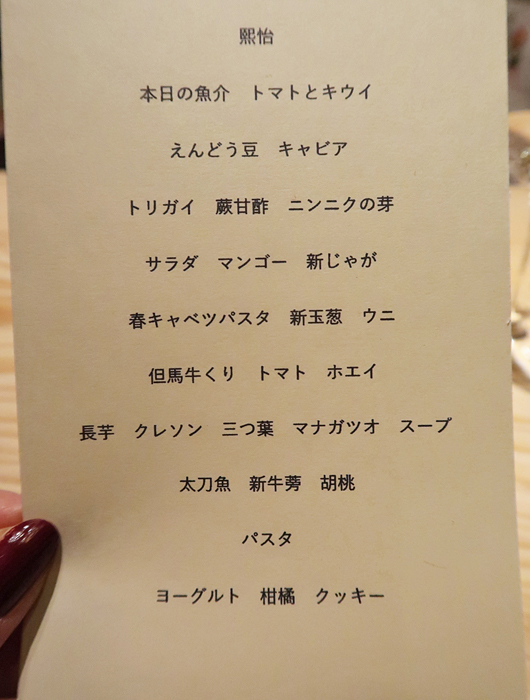 熙怡
本日の魚介　トマトとキウイ
えんどう豆　キャビア
トリガイ　蕨甘酢　ニンニクの芽
サラダ　マンゴー　新じゃが
春キャベツパスタ　新玉葱　ウニ
但馬牛くり　トマト　ホエイ
長芋　クレソン　三つ葉　マナガツオ　スープ
太刀魚　新牛蒡　胡桃
パスタ
ヨーグルト　柑橘　クッキー